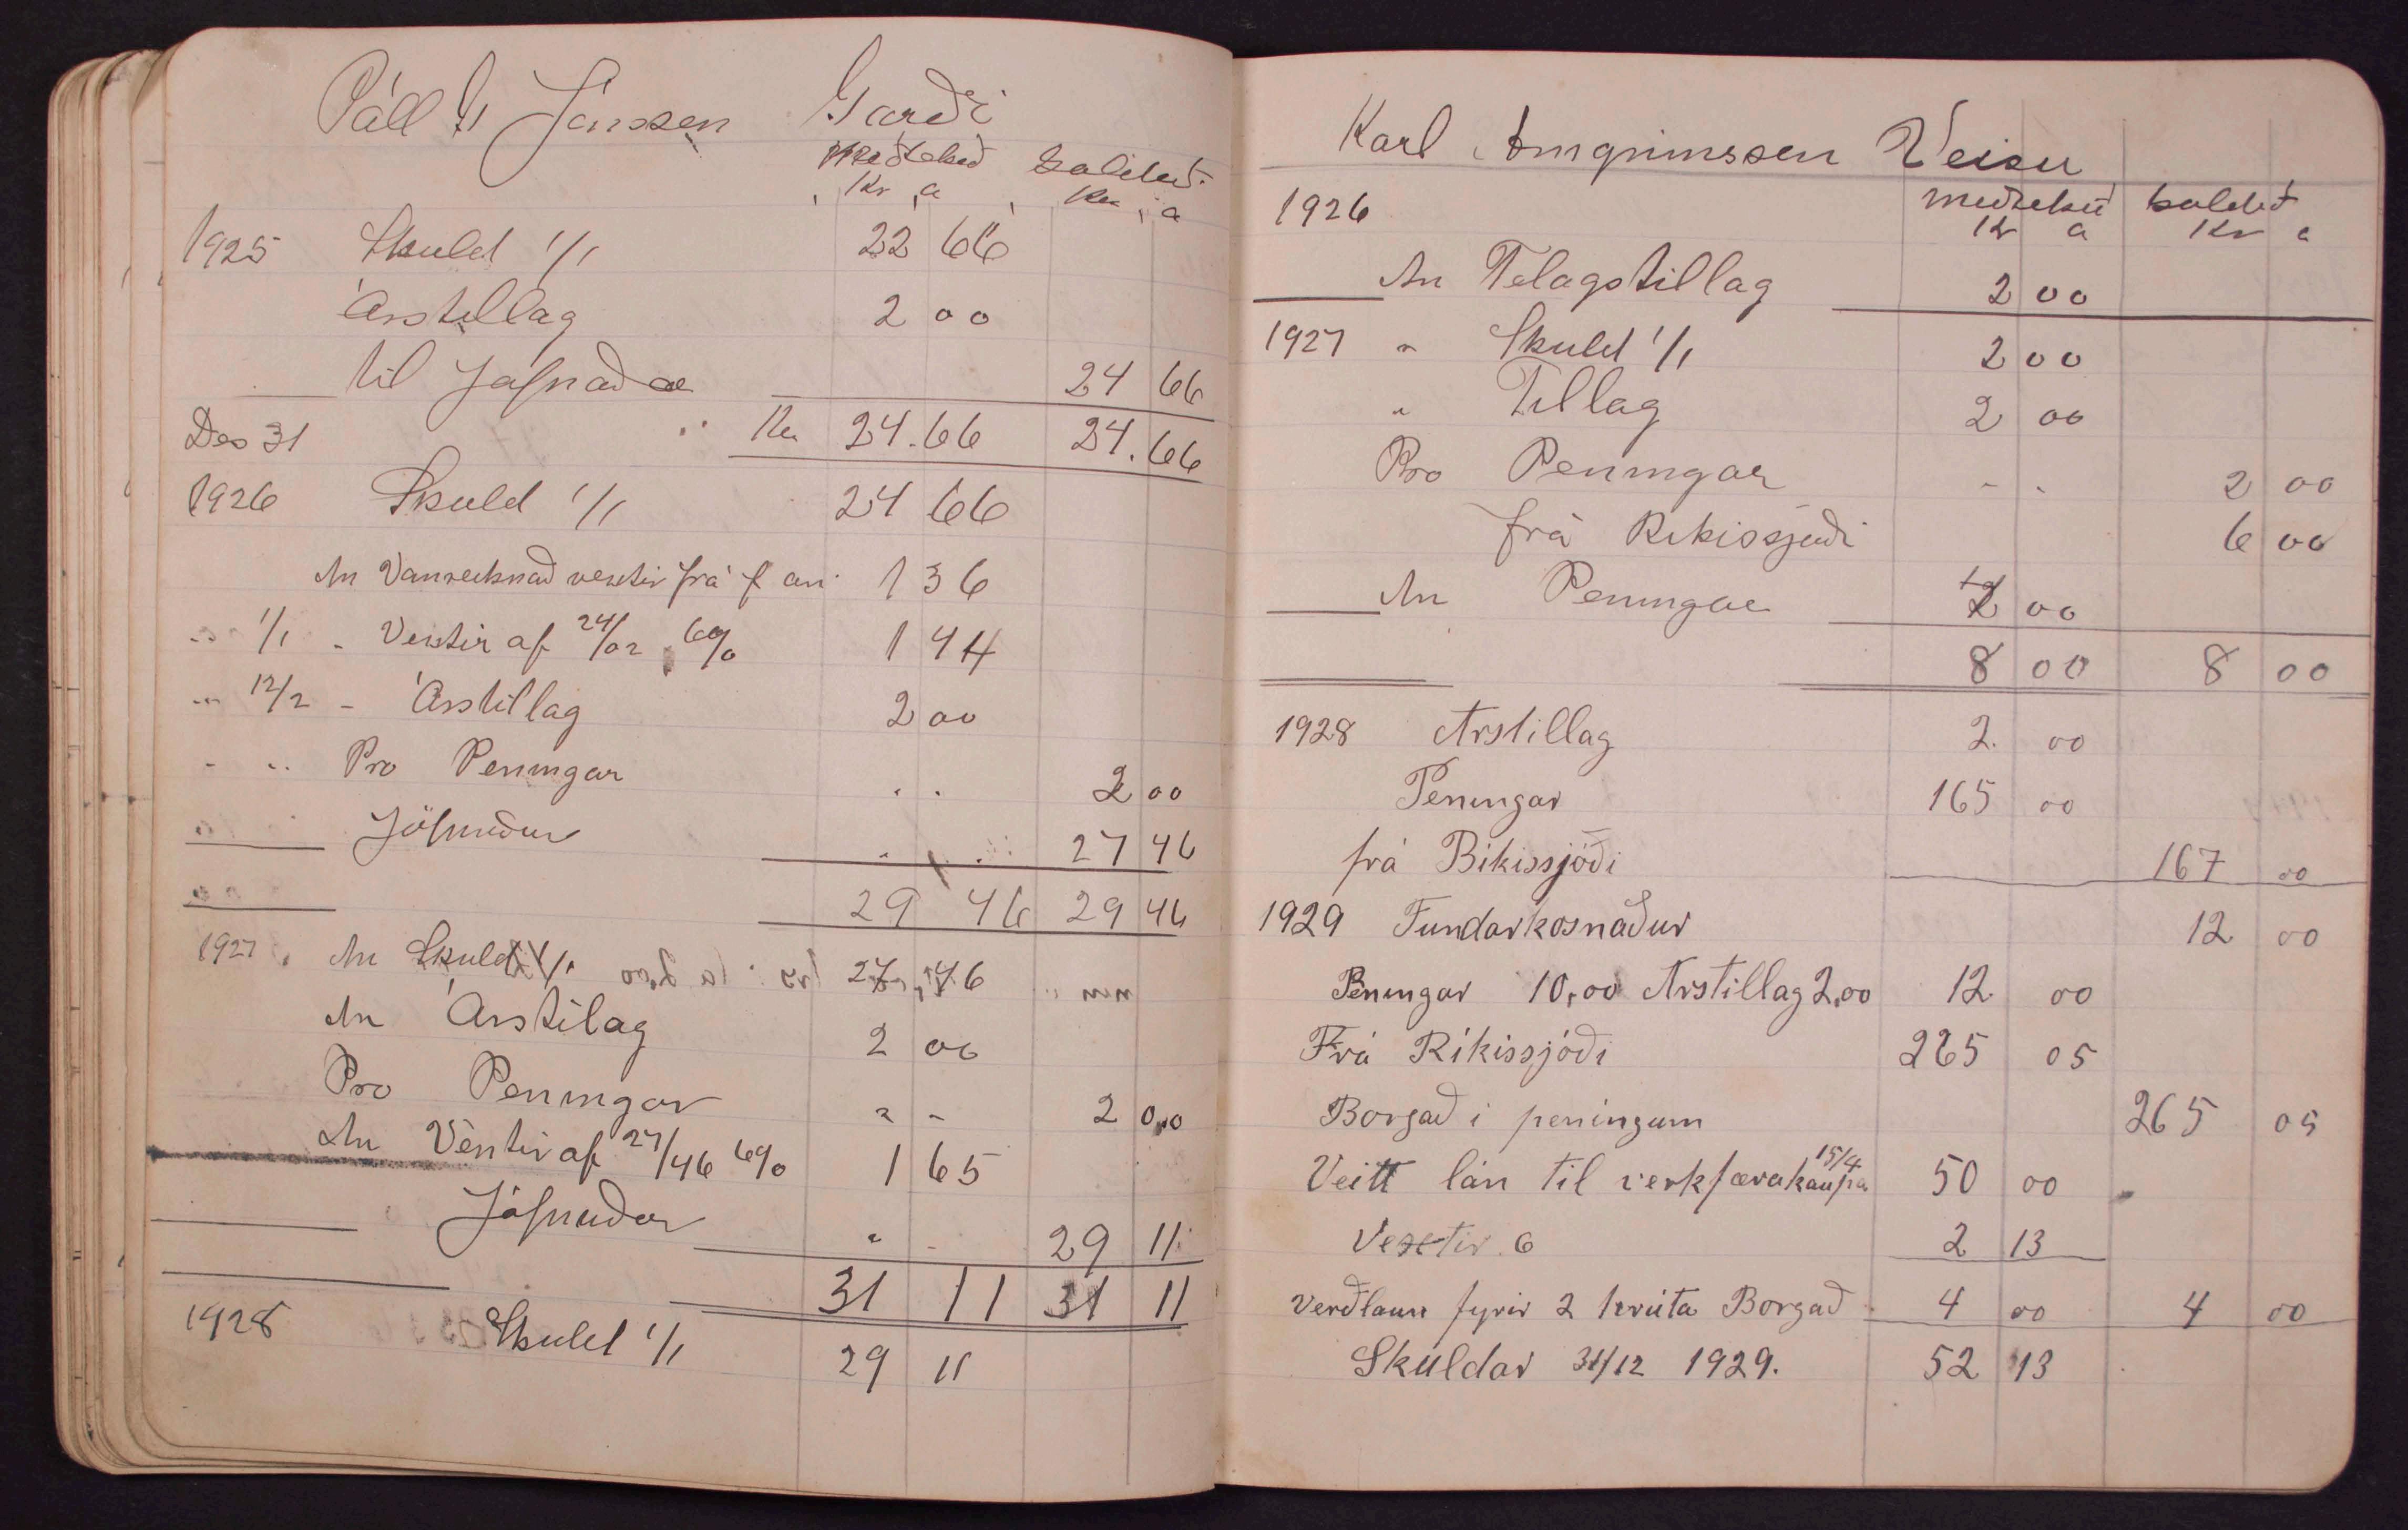 Páll G Jónsson Garði
Meðtekið Goldið
Kr a Kr a
1925 Skuld 1/1 22 66
Árstillag 2 00
til Jafnaðar 24 66
Des 31 Kr 24.66 24.66
1926 Skuld 1/1 24 66
An Vanreiknað vextir frá f ári 1 36
" 1/1 - Vextir af 24/02 6% 1 44
" 12/2 - Árstillag 2 00
- " Pro Peningar " " 2 00
Jöfnuður " " 27 46
29 46 29 46
1927 An Skuld 1/1 27 46
An Árstilag 2 00
Pro Peningar " - 2 00
An Vextir af 27/46 6% 1 65
Jöfnuður " - 29 11
31 11 31 11
1928 Skuld 1/1 29 11
Karl Arngrimsson Veisu
1926 meðtekið goldið
Kr a Kr a
An Felagstillag 2 00
1927 " Skuld 1/1 2 00
" Tillag 2 00
Pro Peningar - - 2 00
frá Rikissjóði 6 00
An Peningar 00
8 00 8 00
1928 Árstillag 2 00
Peningar 165 00
frá Ríkissjóði 167 00
1929 Fundarkosnaður 12 00
Peningar 10,00 Arstillag 2,00 12 00
Frá Ríkissjóði 265 05
Borgað i peningum 265 05
Veitt lán til verkfærakaupa 15/4 50 00
Vextir 6 2 13
Verðlaun fyrir 2 hrúta Borgað 4 00 4 00
Skuldar 31/12 1929. 52 13